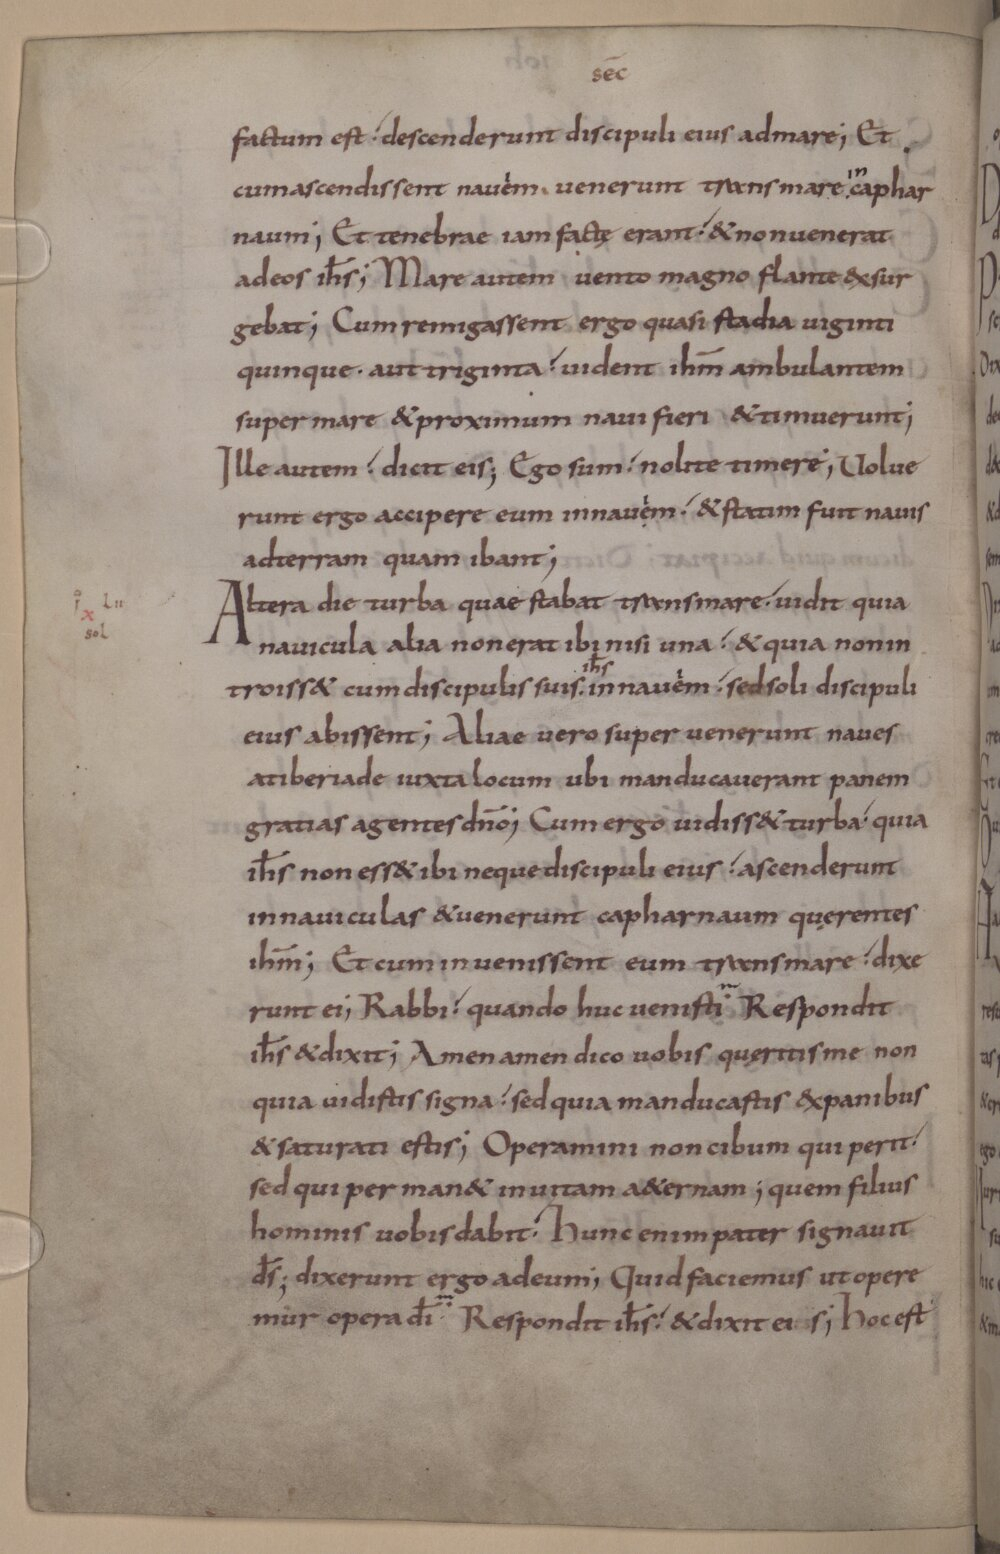 sēc
factum est. descenderunt discipuli eius admare; Et
cumascendissent navem. venerunt transmare in caphar
naum; Et tenebrae iam factę erant. & nonvenerat
adeos ihs̄; Mare autem vento magno flante exsur
gebat; Cum remigassent ergo quasi stadia uiginti
quinque. aut triginta. uident ihm̄ ambulantem
super mare & proximum navi fieri & timuerunt;
Ille autem. dicit eis; Ego sum. nolite timere; Uolue
runt ergo accipere eum innavem. & statim fuit navis
adterram quam ibant;
Altera die turba quae stabat transmare. uidit quia
navicula alia nonerat ibi nisi una. & quia nonin
troiss& cumdiscipulis suis ihs̄ innavem. sedsoli discipuli
eius abissent; Aliae vero super venerunt naves
atiberiade iuxta locum ubi manducaverant panem
gratias agentes dn̄o; Cum ergo uidiss& turba. quia
ihs̄ non ess& ibi neque discipuli eius. ascenderunt
innaviculas & venerunt capharnaum quęrentes
ihm̄; Et cum invenissent eum transmare. dixe
runt ei; Rabbi. quando huc venisti Respondit
ihs̄ & dixit; Amen amen dico uobis quęritisme non
quia uidistis signa. sed quia manducastis expanibus
& saturati estis; Operamini non cibum qui perit.
sed qui per man& inuitam a&ernam; quem filius
hominis uobis dabit. Hunc enim pater signavit
ds̄; dixerunt ergo adeum; Quid faciemus ut opere
mur opera dī Respondit ihs̄. & dixit eis; Hoc est